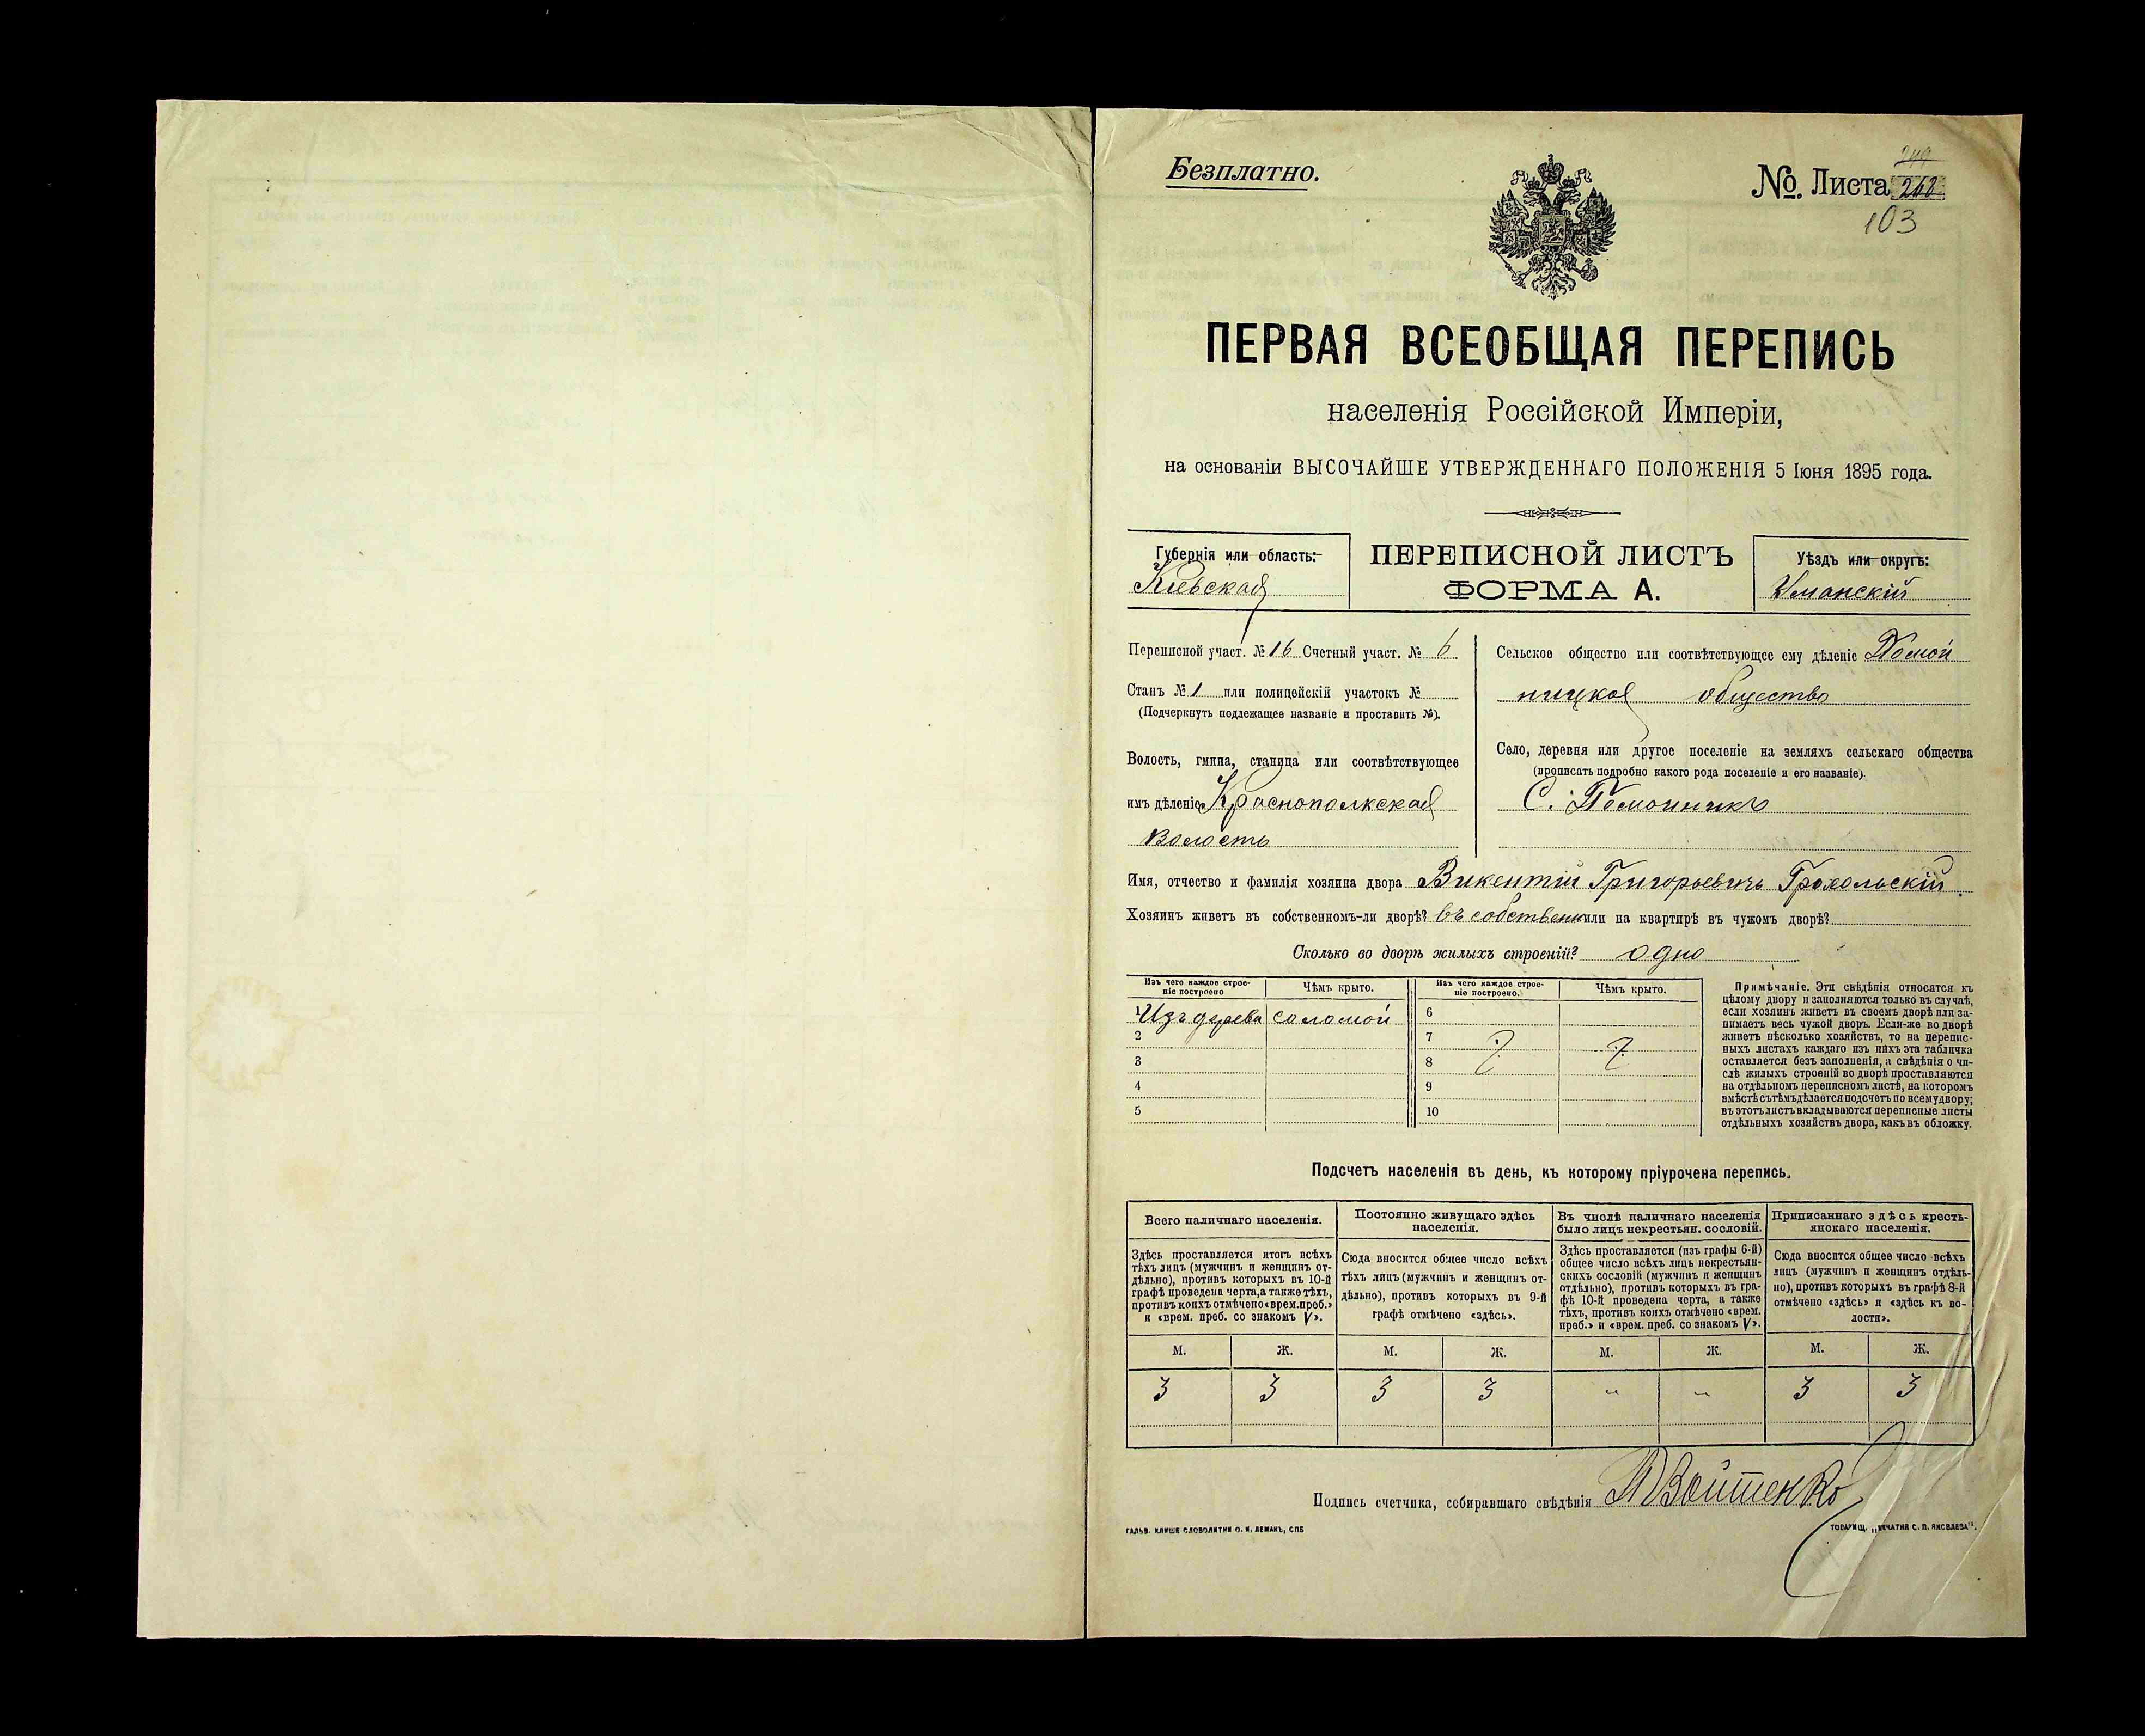 Безплатно.
№ Листа 262
103
ПЕРВАЯ ВСЕОБЩАЯ ПЕРЕПИСЬ
населенія Россійской Имперіи,
на основаніи ВЫСОЧАЙШЕ УТВЕРЖДЕННАГО ПОЛОЖЕНІЯ 5 Іюня 1895 года.
Губернія или область:
Кіевская
ПЕРЕПИСНОЙ ЛИСТЪ
ФОРМА А.
Уѣздъ или округъ:
Уманскій
Переписной участ. № 16 Счетный участ. № 6
Станъ № 1 или полицейскій участокъ №
(Подчеркнуть подлежащее названіе и проставить №).
Волость, гмина, станица или соотвѣтствующее
имъ дѣленіе Краснополкская
Волость
Сельское общество или соотвѣтствующее ему дѣленіе Помой
ницкое общество
Село, деревня или другое поселеніе на земляхъ сельскаго общества
(прописать подробно какого рода поселеніе и его названіе).
С. Помойникъ
Имя, отчество и фамилія хозяина двора Викентій Григорьевичъ Грохольскій
Хозяинъ живетъ въ собственномъ-ли дворѣ? въ собственн или на квартирѣ въ чужомъ дворѣ?
Сколько во дворѣ жилыхъ строеній? одно
Изъ чего каждое строе-
ніе построено
Чѣмъ крыто.
Изъ чего каждое строе-
ніе построено.
Чѣмъ крыто.
1 Изъ дерева соломой
2
3
4
5
6
7
8
9
10
Примѣчаніе. Эти свѣдѣнія относятся къ
цѣлому двору и заполняются только въ случаѣ,
если хозяинъ живетъ въ своемъ дворѣ или за-
нимаетъ весь чужой дворъ. Если-же во дворѣ
живетъ нѣсколько хозяйствъ, то на перепис-
ныхъ листахъ каждаго изъ нихъ эта табличка
оставляется безъ заполненія, а свѣдѣнія о чи-
слѣ жилыхъ строеній во дворѣ проставляются
на отдѣльномъ переписномъ листѣ, на которомъ
вмѣстѣ съ тѣмъ дѣлается подсчетъ по всему двору;
въ этотъ листъ вкладываются переписные листы
отдѣльныхъ хозяйствъ двора, какъ въ обложку.
Подсчетъ населенія въ день, къ которому пріурочена перепись.
Всего наличнаго населенія.
Здѣсь проставляется итогъ всѣхъ
тѣхъ лицъ (мужчинъ и женщинъ от-
дѣльно), противъ которыхъ въ 10-й
графѣ проведена черта, а также тѣхъ,
противъ коихъ отмѣчено «врем. преб.»
и «врем. преб. со знакомъ V».
Постоянно живущаго здѣсь
населенія.
Сюда вносится общее число всѣхъ
тѣхъ лицъ (мужчинъ и женщинъ от-
дѣльно), противъ которыхъ въ 9-й
графѣ отмѣчено «здѣсь».
Въ числѣ наличнаго населенія
было лицъ некрестьян. сословій.
Здѣсь проставляется (изъ графы 6-й)
общее число всѣхъ лицъ некрестьян-
скихъ сословій (мужчинъ и женщинъ
отдѣльно), противъ которыхъ въ гра-
фѣ 10-й проведена черта, а также
тѣхъ, противъ коихъ отмѣчено «врем.
преб.» и «врем. преб. со знакомъ V».
Приписаннаго здѣсь кресть-
янскаго населенія.
Сюда вносится общее число всѣхъ
лицъ (мужчинъ и женщинъ отдѣль-
но), противъ которыхъ въ графѣ 8-й
отмѣчено «здѣсь» и «здѣсь къ во-
лости».
М. Ж. М. Ж. М. Ж. М. Ж.
3 3 3 3 „ „ 3 3
Подпись счетчика, собиравшаго свѣдѣнія Войтенко
ГАЛЬВ. КЛИШЕ СЛОВОЛИТНИ О. И. ЛЕМАНЪ, СПБ
ТОВАРИЩ. „ПЕЧАТНЯ С. П. ЯКОВЛЕВА".